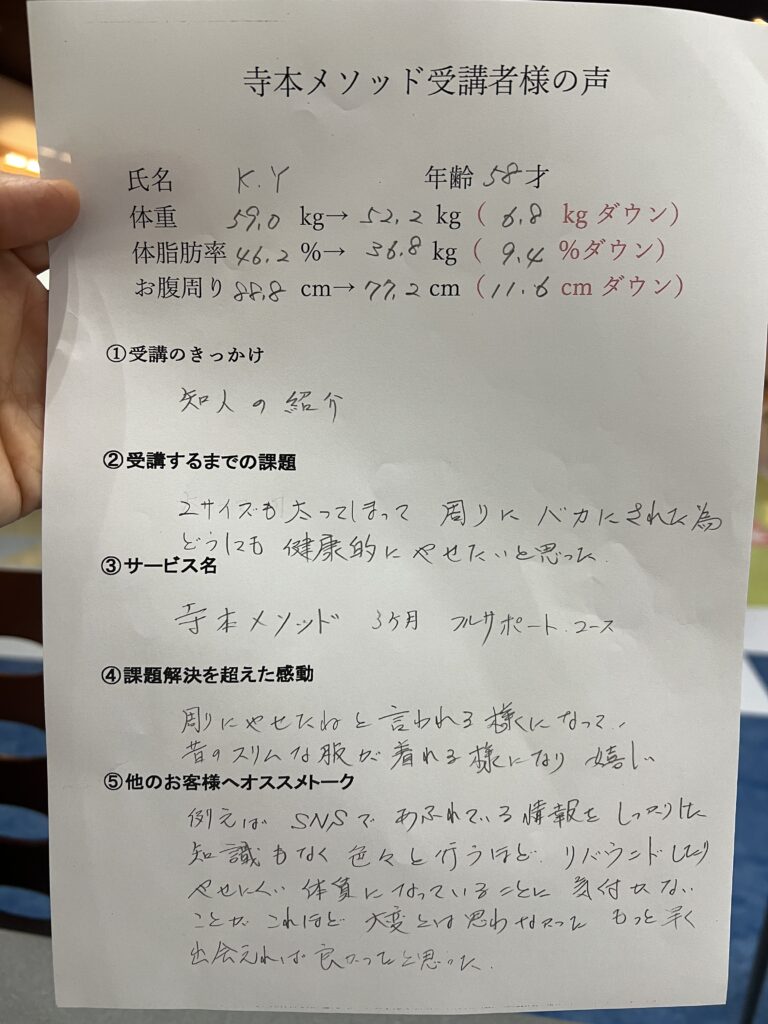 寺本メソッド受講者様の声
氏名 K.Y 年齢 58才
体重 59.0 kg→ 52.2 kg ( 6.8 kg ダウン)
体脂肪率 46.2 %→ 36.8 kg ( 9.4 %ダウン)
お腹周り 88.8 cm→ 77.2 cm (11.6 cm ダウン)
①受講のきっかけ
知人の紹介
②受講するまでの課題
2サイズも太ってしまって 周りにバカにされた為
どうにも 健康的にやせたいと思った.
③サービス名
寺本メソッド 3ヶ月 フルサポート.コース
④課題解決を超えた感動
周りにやせたねと言われる様くになって、
昔のスリムな服が着れる様になり 嬉しい
⑤他のお客様へオススメトーク
例えば SNSで あふれている情報をしっかりした
知識もなく 色々と行うほど、リバウンドしたり
やせにくい 体質になっていることに 気付かない
ことが これほど 大変とは思わなかった もっと早く
出会えれば良かったと思った.